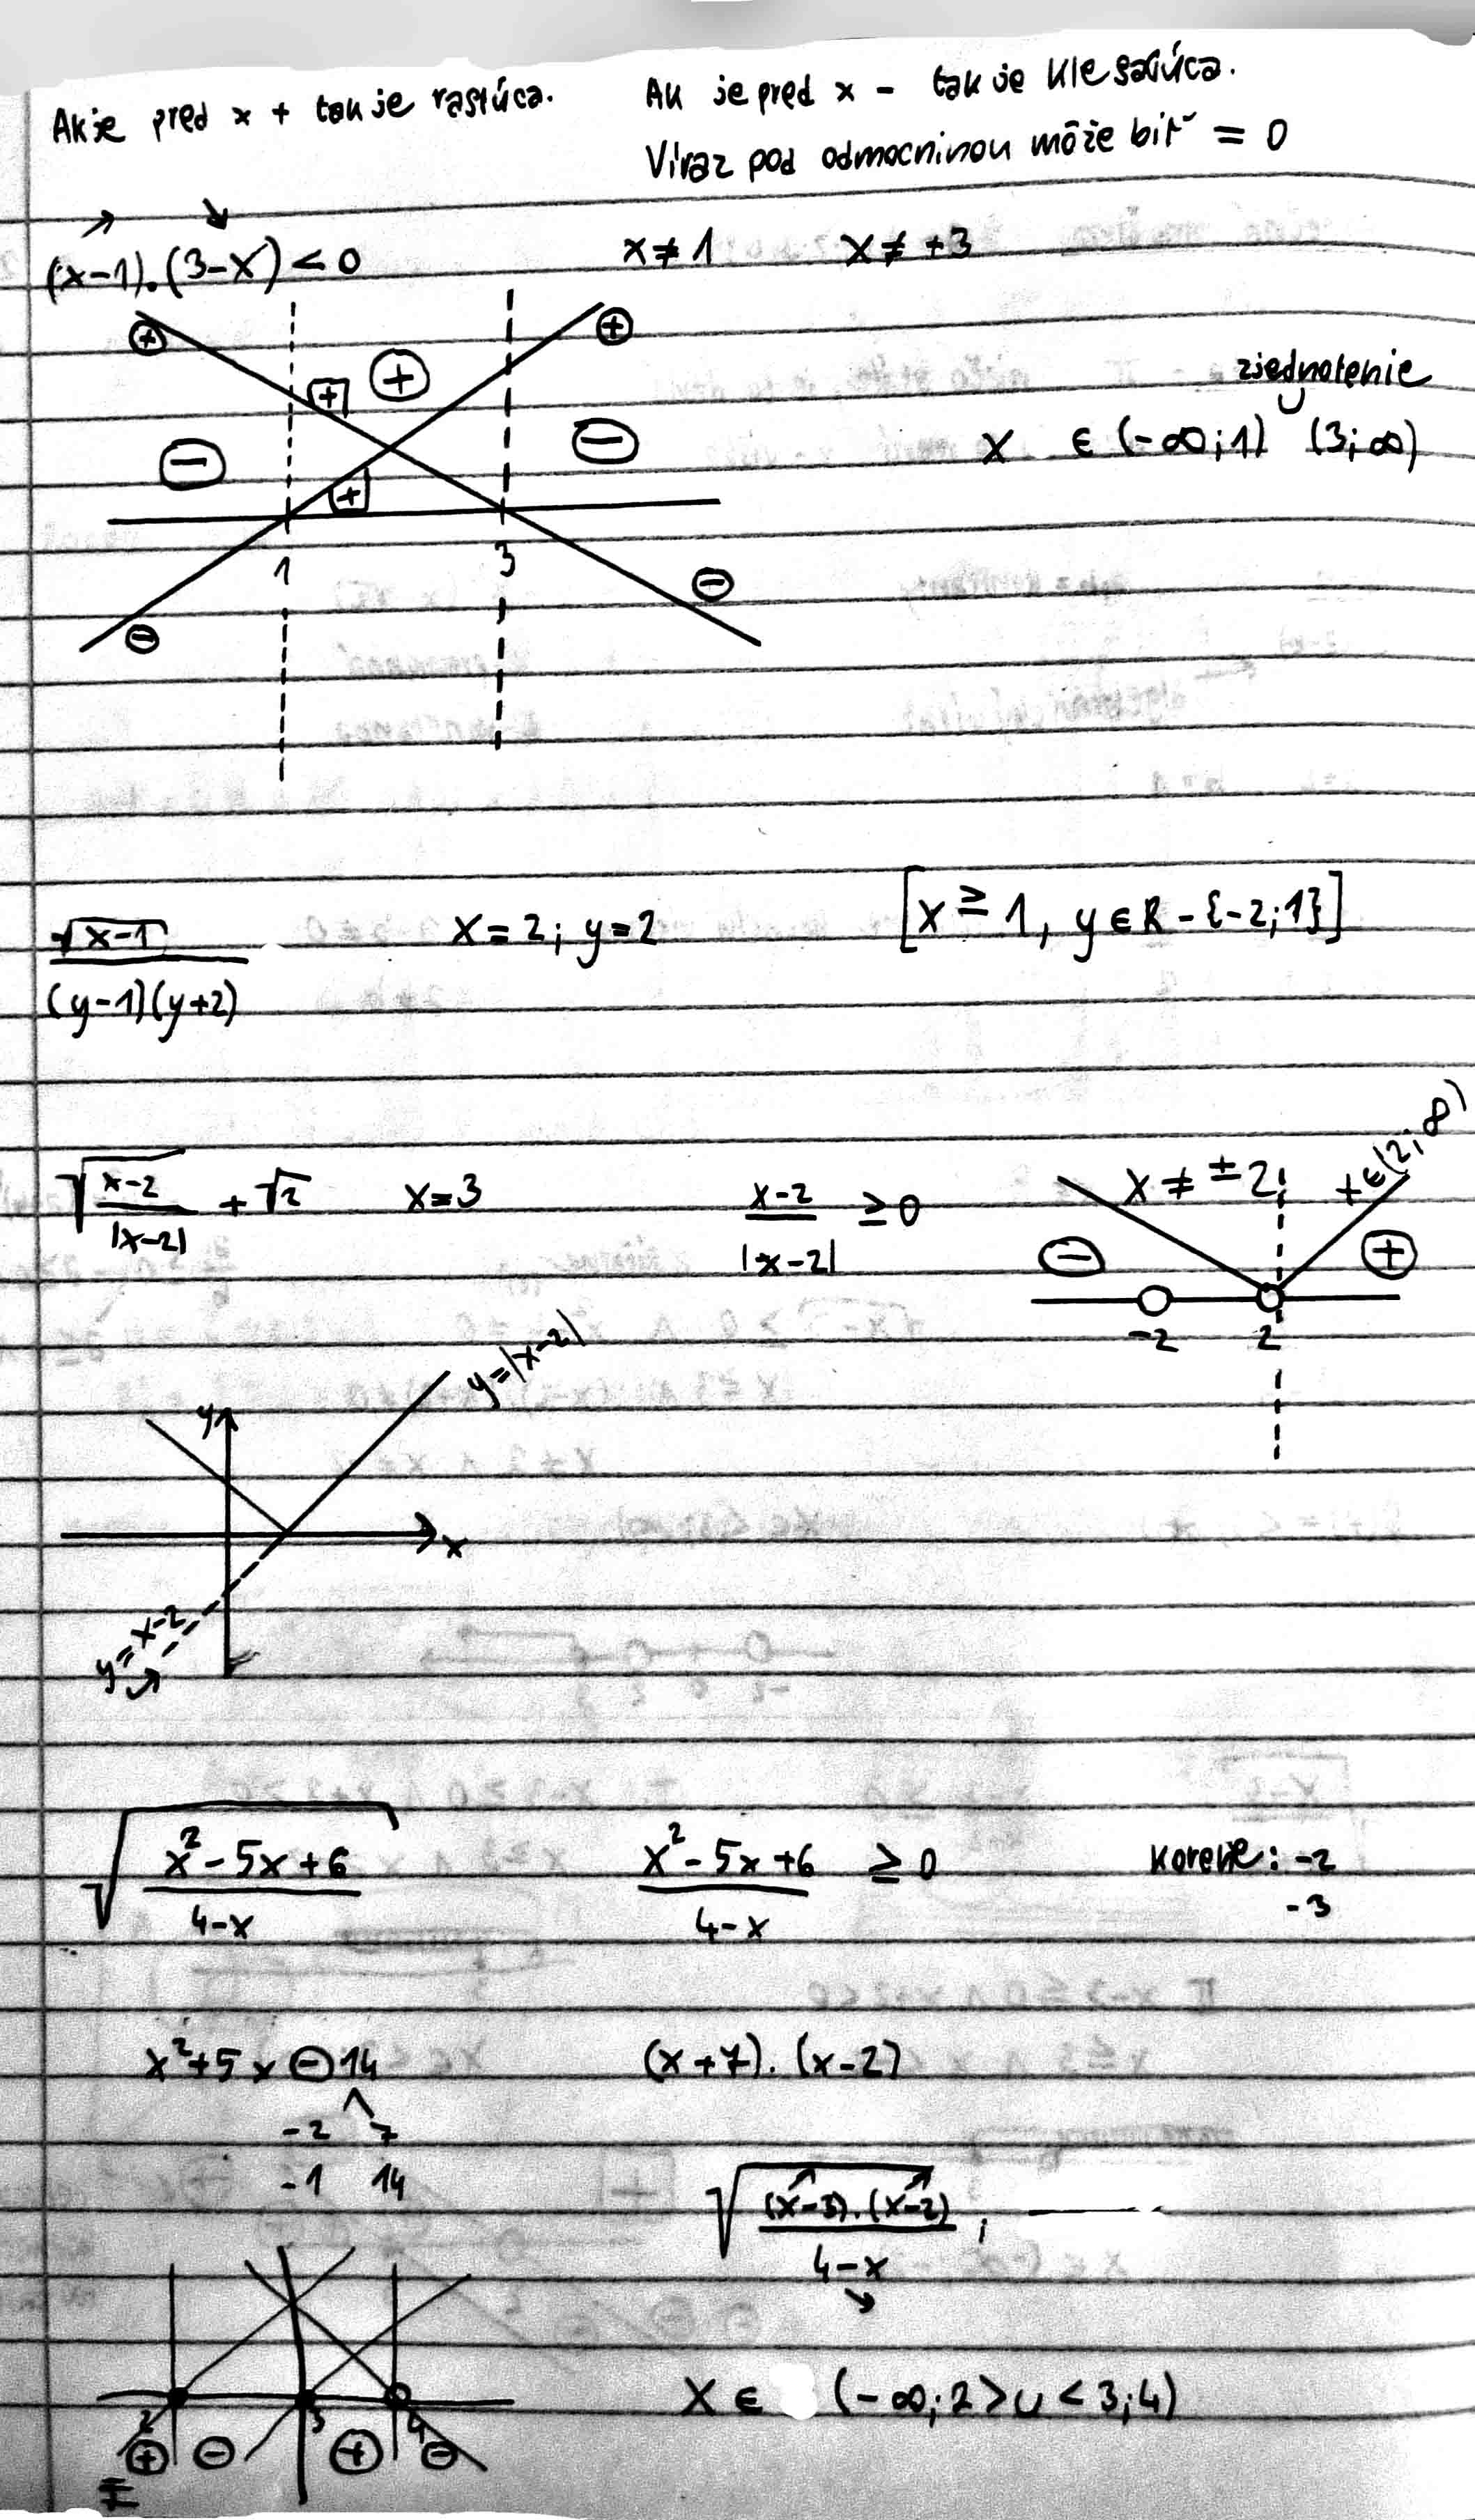 Ak je pred x + tak je rastúca.
Ak je pred x - tak je klesajúca.
Víraz pod odmocninou môže biť = 0
(x-1).(3-x) < 0
x ≠ 1 x ≠ +3
+ + + +
zjednotenie
∪
x ∈ (-∞; 1) (3; ∞)
- + -
1 3
- -
√x-1
(y-1)(y+2)
x = 2; y = 2
[x ≥ 1, y ∈ R - {-2; 1}]
√x-2/|x-2| + √2
x = 3
x-2/|x-2| ≥ 0
x ≠ ±2
x ∈ (2; ∞)
- +
-2 2
y = |x-2|
y
x
y = x-2
√x²-5x+6/4-x
x²-5x+6/4-x ≥ 0
korene: -2
-3
x²+5x-14
(x+7).(x-2)
-2 7
-1 14
√(x-3).(x-2)/4-x ;
2 3 4
+ - + -
x ∈ (-∞; 2> ∪ <3; 4)